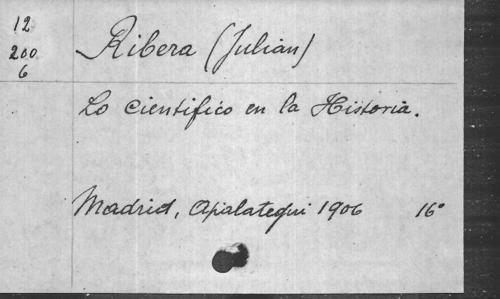 12
200
6
Ribera (Julian)
Lo cientifico en la Historia.
Madrid, Apalategui 1906 16º